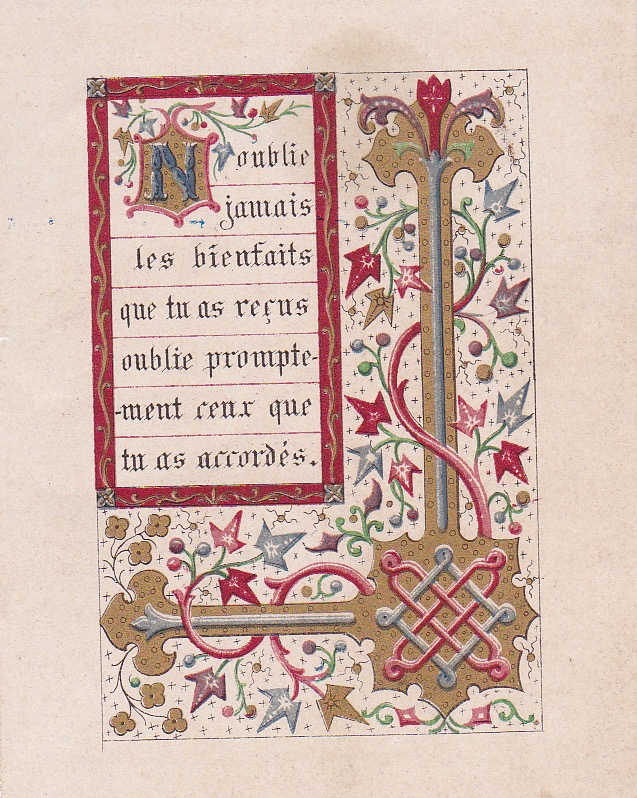 Noublie
jamais
les bienfaits
que tu as reçus
oublie prompte-
-ment ceux que
tu as accordés.